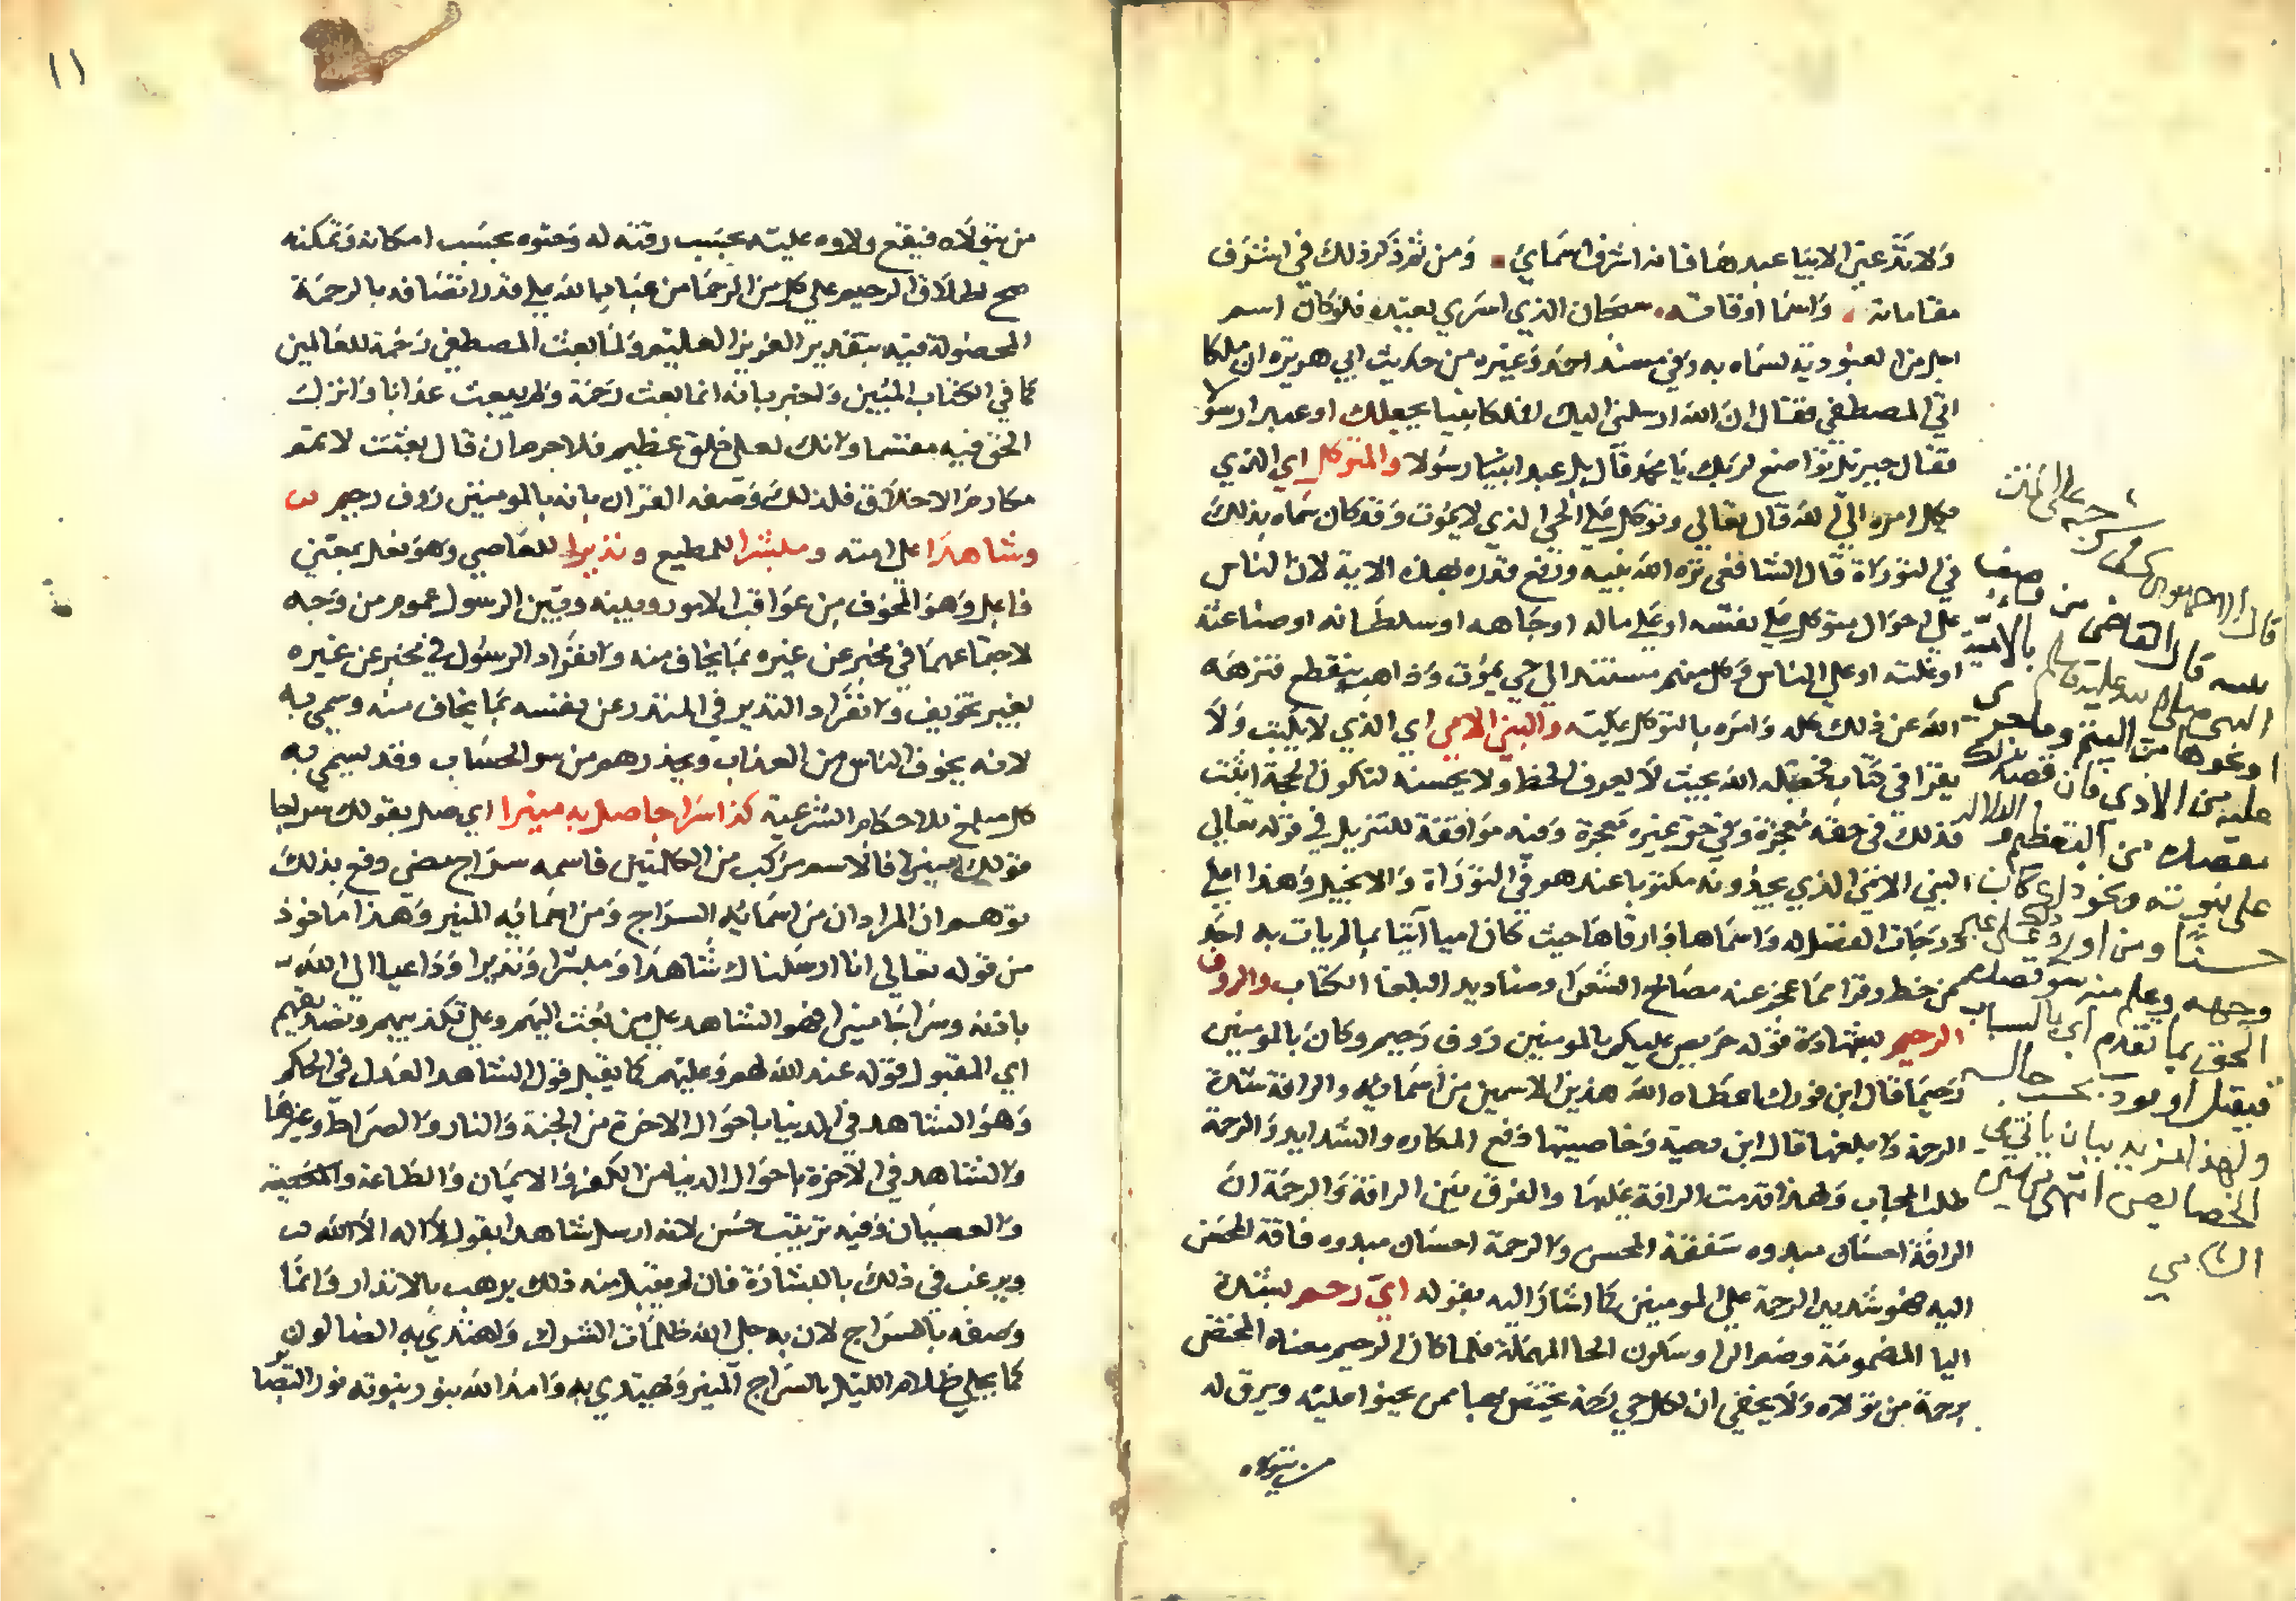 ولا تدعني الا بيا عبدها فانه اشرف اسمائي ومن ثم ذكر ذلك في اشرف
مقاماته واسما اوقاته سبحان الذي اسري بعبده فلو كان اسم
اجل من العبودية لسماه به وفي مسند احمد وغيره من حديث ابي هريرة ان ملكا
اتي المصطفي فقال ان الله ارسلني اليك افملكا نبيا يجعلك او عبدا رسولا
فقال جبريل تواضع لربك يا محمد قال بل عبدا نبيا رسولا والمتوكل اي الذي
يكل امره الي الله قال تعالي وتوكل علي الحي الذي لا يموت وقد كان سماه بذلك
في التوراة قال الشافعي نزه الله نبيه ورفع قدره بهذه الاية لان الناس
علي احوال متوكل علي نفسه او علي ماله او جاهه او سلطانه او صناعته
او غلته او علي الناس وكل منهم مستند الي حي يموت وذاهب ينقطع فنزهه
الله عن ذلك كله وامره بالتوكل عليه والنبي الامي اي الذي لا يكتب ولا
يقرا في كتاب فجعله الله بحيث لا يعرف الخط ولا يحسنه لتكون الحجة اثبت
فذلك في حقه معجزة وفي حق غيره معجرة وفيه موافقة للتنزيل في قوله تعالي
النبي الامي الذي يجدونه مكتوبا عندهم في التوراة والانجيل وهذا اعلي
درجات الفضل له واسماها وارقاها حيث كان اميا آتيا بما لم يات به احد
ممن خط وقرا مما عجز عنه مصالح الشعرا وصناديد البلغا الكتاب والروف
الرحيم بشهادة قوله حريص عليكم بالمومنين روف رحيم وكان بالمومنين
رحيما قال ابن فورك اعطاه الله هذين الاسمين من اسمائه والرافة شدة
الرحمة وابلغها قال ابن دحية وخاصيتها دفع المكاره والشدايد والرحمة
طلب المحاب ولهذا قدمت الرافة عليها والفرق بين الرافة والرحمة ان
الرافة احسان مبدوه شفقة المحسن والرحمة احسان مبدوه فاقة المحسن
اليه فهو شديد الرحمة علي المومنين كما اشار اليه بقوله اي رحم بشدة
اليا المضمومة وضم الرا وسكون الحا المهملة فلما كان الرحيم معناه المختص
برحمة من تولاه ولا يخفي ان لكل حي رحمة يختص بها ممن يحنوا عليه ويرق له
من يتولاه
قال
قال القاضي من وصف
النبي صلى الله عليه وسلم بالامية
او نحوها من اليتم وما جرى
عليه من الاذى فان قصد بذلك
مقصده من التعظيم والدلالة
على نبوته ونحو ذلك كان
حسنا ومن اورد ذلك على غير
وجهه وعلم منه سو قصده
لحق بما تقدم اي بالسباب
فيقتل او يودب بحسب حاله
ولهذا مزيد بيان ياتي في
الخصايص انتهى من سيرة
الشامي
١١
من يتولاه فيقع ولاوه عليه بحسب رقته له وحنوه بحسب امكانه وتمكنه
صح اطلاق الرحيم علي كل من الرحما من عباد الله علي قدر اتصافه بالرحمة
المحصولة فيه بتقدير العزيز العليم ولما بعث المصطفي رحمة للعالمين
كما في الكتاب المبين واخبر بانه انما بعث رحمة ولم يبعث عذابا وانزل
الحق فيه مقسما وانك لعلي خلق عظيم فلا جرم ان قال بعثت لاتمم
مكارم الاخلاق فلذلك وصفه القران بانه بالمومنين روف رحيم
وشاهدا علي امته ومبشرا للمطيع ونذيرا للعاصي وهو فعل بمعني
فاعل وهو المخوف من عواقب الامور وبينه وبين الرسول عموم من وجه
لاجتماعهما في مخبر عن غيره بما يخاف منه وانفراد الرسول في مخبر عن غيره
بغير تخويف وانفراد النذير في المنذر عن نفسه بما يخاف منه وسمي به
لانه يخوف الناس من العذاب ويحذرهم من سو الحساب وقد يسمي به
كل مبلغ للاحكام الشرعية كذا سراجا صل به منيرا اي صل بقولك سراجا
قولك منيرا فالاسم مركب من الكلمتين فاسمه سراج مضي دفع بذلك
توهم ان المراد ان من اسمائه السراج ومن اسمائه المنير وهذا ماخوذ
من قوله تعالي انا ارسلناك شاهدا ومبشرا ونذيرا وداعيا الي الله
باذنه وسراجا منيرا فهو الشاهد علي من بعث اليهم وعلي تكذيبهم وتصديقهم
اي المقبول قوله عند الله لهم وعليهم كما يقبل قول الشاهد العدل في الحكم
وهو الشاهد في الدنيا باحوال الاخرة من الجنة والنار والصراط وغيرها
والشاهد في الاخرة باحوال الدنيا من الكفر والايمان والطاعة والمعصية
والعصيان وفيه ترتيب حسن لانه ارسل شاهدا بقول لا اله الا الله
ويرغب في ذلك بالبشارة فان لم يقبل منه ذلك يرهب بالانذار وانما
وصفه بالسراج لان به جلي الله ظلمات الشرك واهتدي به الضالون
كما يجلي ظلام الليل بالسراج المنير ويهتدي به وامد الله بنور نبوته نور البصا